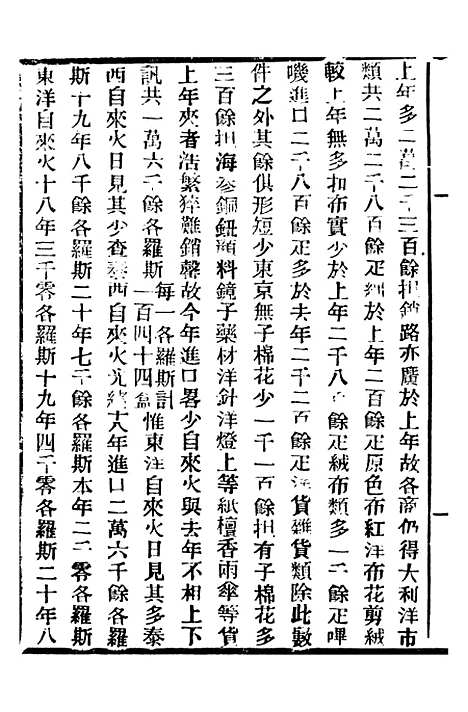 上年多二萬二千三百餘担銷路亦廣於上年故各商仍得大利洋布
類共二萬二千八百餘疋絀於上年二百餘疋原色布紅洋布花剪絨
較上年無多扣布實少於上年二千八百餘疋絨布類多一千餘疋嗶
嘰進口二千八百餘疋多於去年二千二百餘疋洋貨雜貨類除此數
件之外其餘俱形短少東京無子棉花少一千一百餘担有子棉花多
三百餘担海參銅鈕顏料鏡子藥材洋針洋燈上等紙檀香雨傘等貨
上年來者浩繁猝難銷罄故今年進口畧少自來火與去年不相上下
訊共一萬六千餘各羅斯每一各羅斯計一百四十四盒惟東洋自來火日見其多泰
西自來火日見其少查泰西自來火光緒十八年進口二萬六千餘各羅
斯十九年八千餘各羅斯二十年七千餘各羅斯本年二千零各羅斯
東洋自來火十八年三千零各羅斯十九年四千零各羅斯二十年八